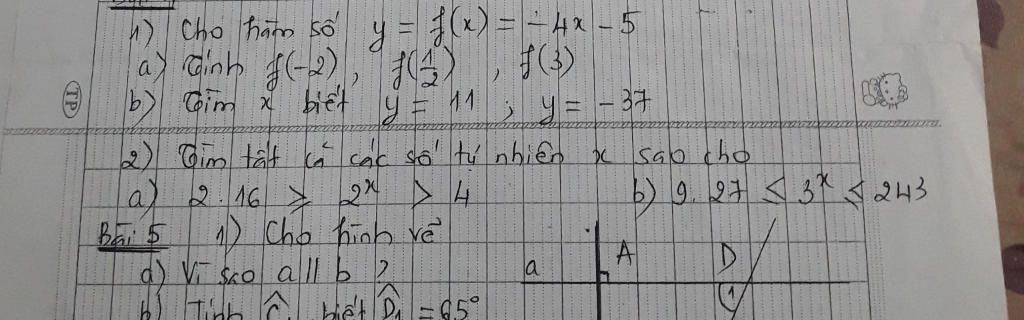 1) Cho hàm số y = f(x) = -4x - 5
a) Tính f(-2), f(1/2), f(3)
b) Tìm x biết y = 11 ; y = -37
TP
2) Tìm tất cả các số tự nhiên x sao cho
a) 2.16 ≥ 2^x > 4 b) 9.27 ≤ 3^x ≤ 243
Bài 5 1) Cho hình vẽ
a) Vì sao a // b ?
a A D 1
b) Tính Ĉ, biết D̂₁ = 65°